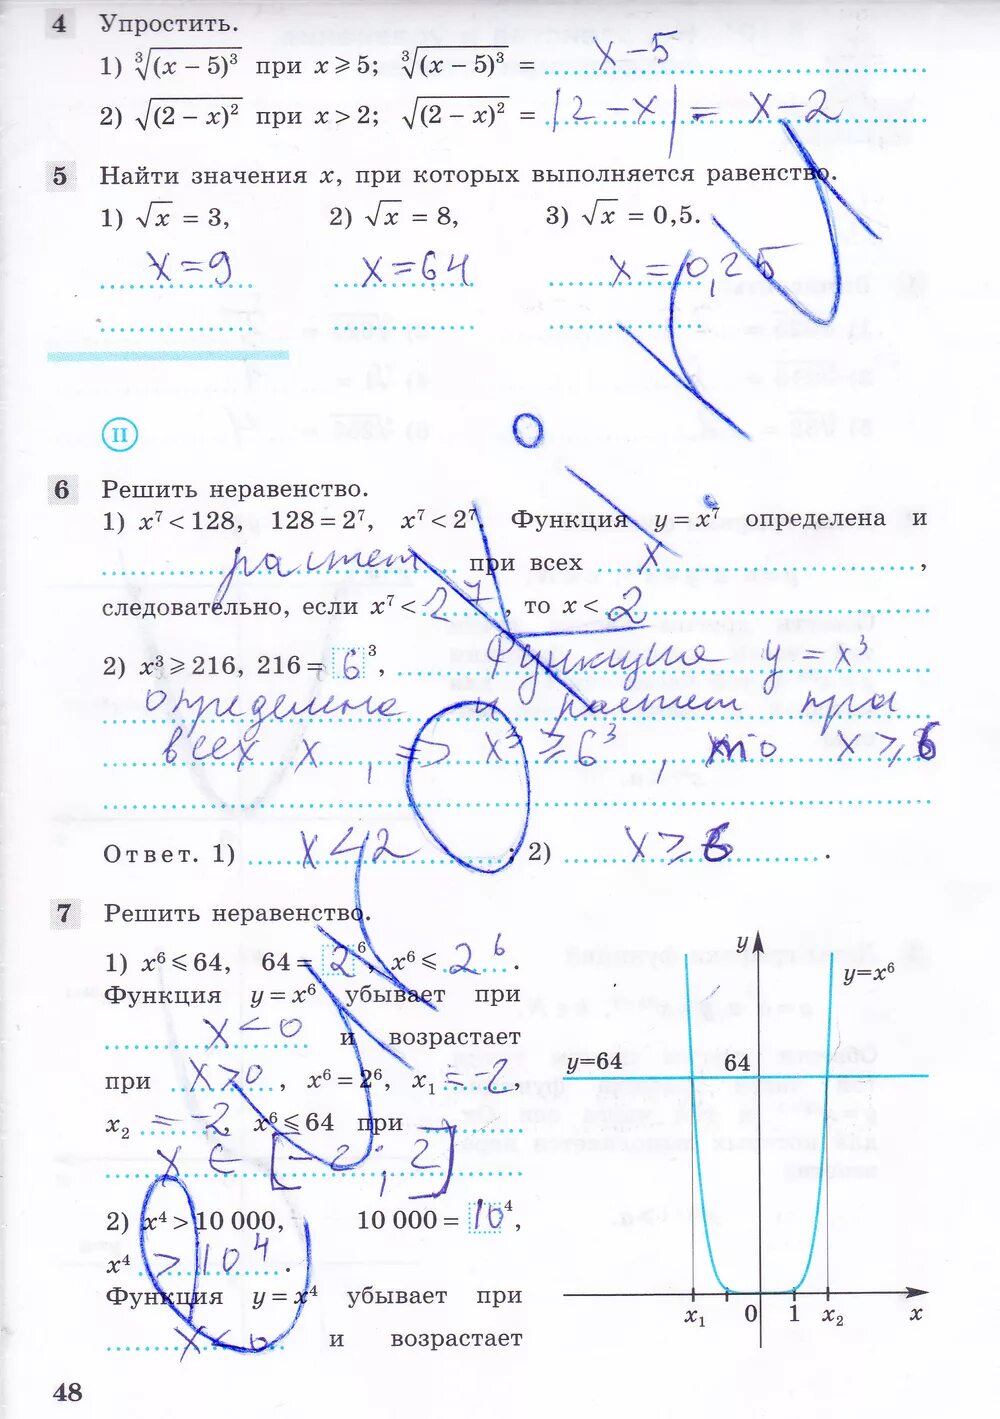 4 Упростить.
1) ∛(x − 5)³ при x ⩾ 5; ∛(x − 5)³ = x − 5
2) √(2 − x)² при x > 2; √(2 − x)² = |2 − x| = x − 2
5 Найти значения x, при которых выполняется равенство.
1) √x = 3, 2) √x = 8, 3) √x = 0,5.
x = 9 x = 64 x = 0,25
II
6 Решить неравенство.
1) x⁷ < 128, 128 = 2⁷, x⁷ < 2⁷. Функция y = x⁷ определена и
растет при всех x ,
следовательно, если x⁷ < 2⁷, то x < 2
2) x³ ⩾ 216, 216 = 6³, Функция y = x³
определена и растет при
всех x, => x³ ⩾ 6³, то x ⩾ 6
Ответ. 1) x < 2 ; 2) x ⩾ 6 .
7 Решить неравенство.
1) x⁶ ⩽ 64, 64 = 2⁶, x⁶ ⩽ 2⁶.
Функция y = x⁶ убывает при
x < 0 и возрастает
при x > 0, x⁶ = 2⁶, x₁ = −2,
x₂ = −2, x⁶ ⩽ 64 при
x ∈ [−2 ; 2]
2) x⁴ > 10 000, 10 000 = 10⁴,
x⁴ > 10⁴.
Функция y = x⁴ убывает при
x < 0 и возрастает
y
y=x⁶
y=64 64
x₁ 0 1 x₂ x
48